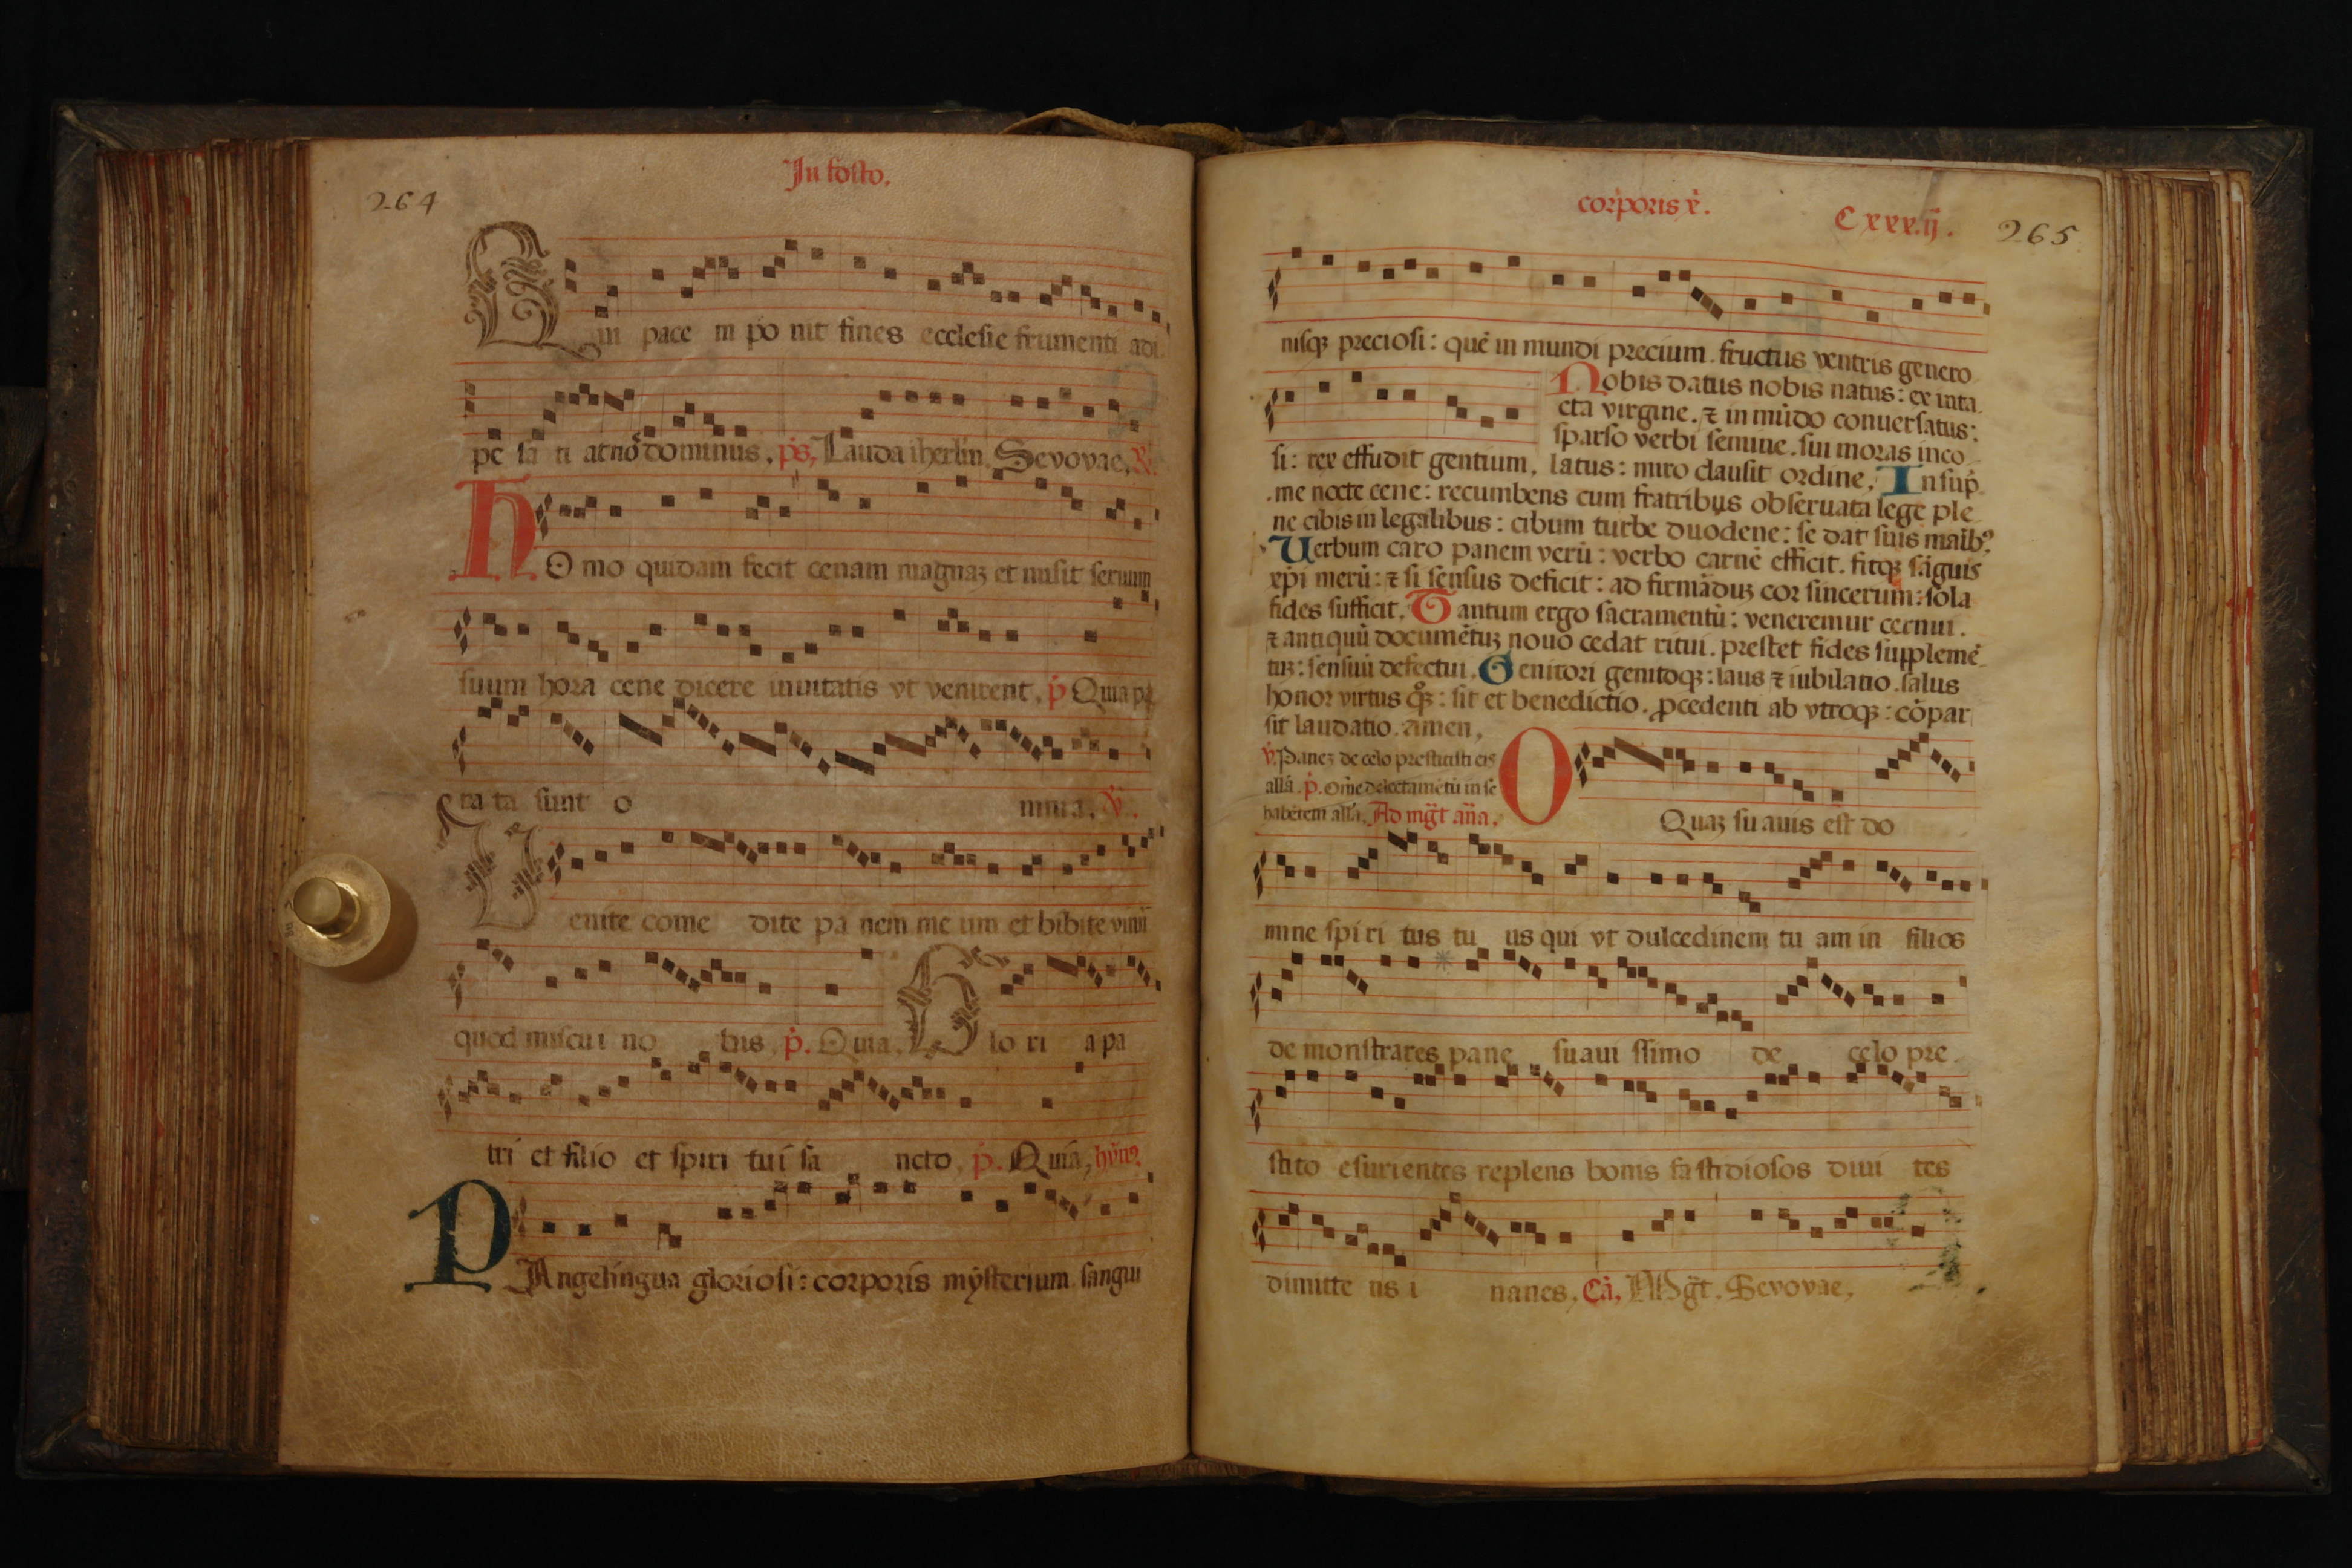 In festo.
264
Qui pace in po nit fines ecclesie frumenti adi
pe sa ti at nō dominus. ps. Lauda iherlm. Sevovae. R.
HO mo quidam fecit cenam magnaz et misit seruum
suum hora cene dicere inuitatis vt venirent. p̄ Quia pa
ra ta sunt o mni a. v̄.
Venite come dite pa nem me um et bibite vinū
quod miscui no bis. p̄. Quia. Glo ri a pa
tri et filio et spiri tui sa ncto. p̄. Quia, hyn9
PAngelingua gloriosi: corporis mysterium. sangui
corporis x̄.
C xxx.ij.
265
nisqꝫ preciosi: quē in mundi precium. fructus ventris genero
Nobis datus nobis natus: ex inta
cta virgine. ⁊ in mūdo conuersatus:
sparso verbi semine. sui moras inco
si: rex effudit gentium. latus: miro clausit ordine. In sup̄
me nocte cene: recumbens cum fratribus obseruata lege ple
ne cibis in legalibus: cibum turbe duodene: se dat suis manib9
Uerbum caro panem verū: verbo carnē efficit. fitqꝫ sāguis
xp̄i merū: ⁊ si sensus deficit: ad firmāduꝫ cor sincerum: sola
fides sufficit. Tantum ergo sacramentū: veneremur cernui.
⁊ antiquū documētuꝫ nouo cedat ritui. prestet fides supplemē
tuꝫ: sensuū defectui. Genitori genitoqꝫ: laus ⁊ iubilatio. salus
honor virtus qꝫ: sit et benedictio. ꝓcedenti ab vtroqꝫ: cōpar
sit laudatio. amen.
v̄. Paneꝫ de celo prestitisti eis
alla. p̄. Ome delectamētū in se
habētem alla. Ad mḡt an̄a.
O Quaꝫ su auis est do
mine spi ri tus tu us qui vt dulcedinem tu am in filios
de monstrares pane suaui ssimo de celo pre
stito esurientes replens bonis fa stidiosos diui tes
dimitte ns i nanes. Ca. Mḡt. Sevovae.